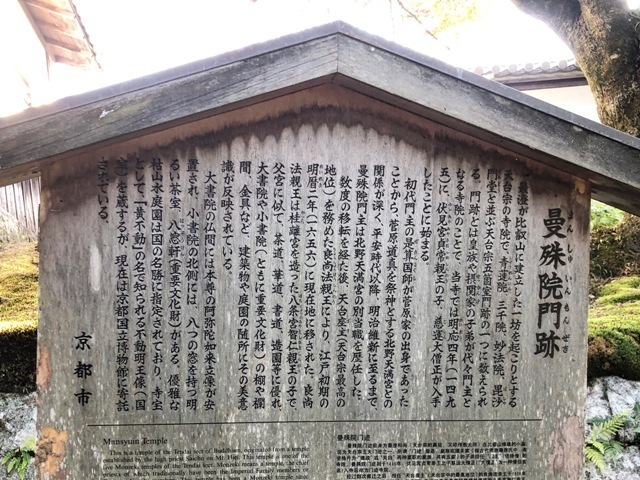 曼殊院門跡
まんしゅいんもんぜき
最澄が比叡山に建立した一坊を起こりとする
天台宗の寺院で、青蓮院、三千院、妙法院、毘沙
門堂と並ぶ天台宗五箇室門跡の一つに数えられ
る。門跡とは皇族や摂関家の子弟が代々門主と
なる寺院のことで、当寺では明応四年(一四九
五)に、伏見宮貞常親王の子、慈運大僧正が入寺
したことに始まる。
初代門主の是算国師が菅原家の出身であった
ことから、菅原道真を祭神とする北野天満宮との
関係が深く、平安時代以降、明治維新に至るまで
曼殊院門主は北野天満宮の別当職を歴任した。
数度の移転を経た後、天台座主(天台宗最高の
地位)を務めた良尚法親王により、江戸初期の
明暦二年(一六五六)に現在地に移された。良尚
法親王は桂離宮を造った八条宮智仁親王の子で
父宮に似て、茶道、華道、書道、造園等に優れ
大書院や小書院(ともに重要文化財)の棚や欄
間、金具など、建築物や庭園の随所にその美意
識が反映されている。
大書院の仏間には本尊の阿弥陀如来立像が安
置され、小書院の北側には、八つの窓を持つ明
るい茶室、八窓軒(重要文化財)がある。優雅な
枯山水庭園は国の名勝に指定されており、寺宝
として、「黄不動」の名で知られる不動明王像(国
宝)を蔵するが、現在は京都国立博物館に寄託
されている。
京都市
Manshuin Temple
This is a temple of the Tendai sect of Buddhism, originated from a temple
established by the high priest Saicho on Mt. Hiei. This temple is one of the
five Monzeki temples of the Tendai sect. Monzeki means a temple, the chief
priests of which traditionally have been the Imperial Family members or
曼殊院门迹